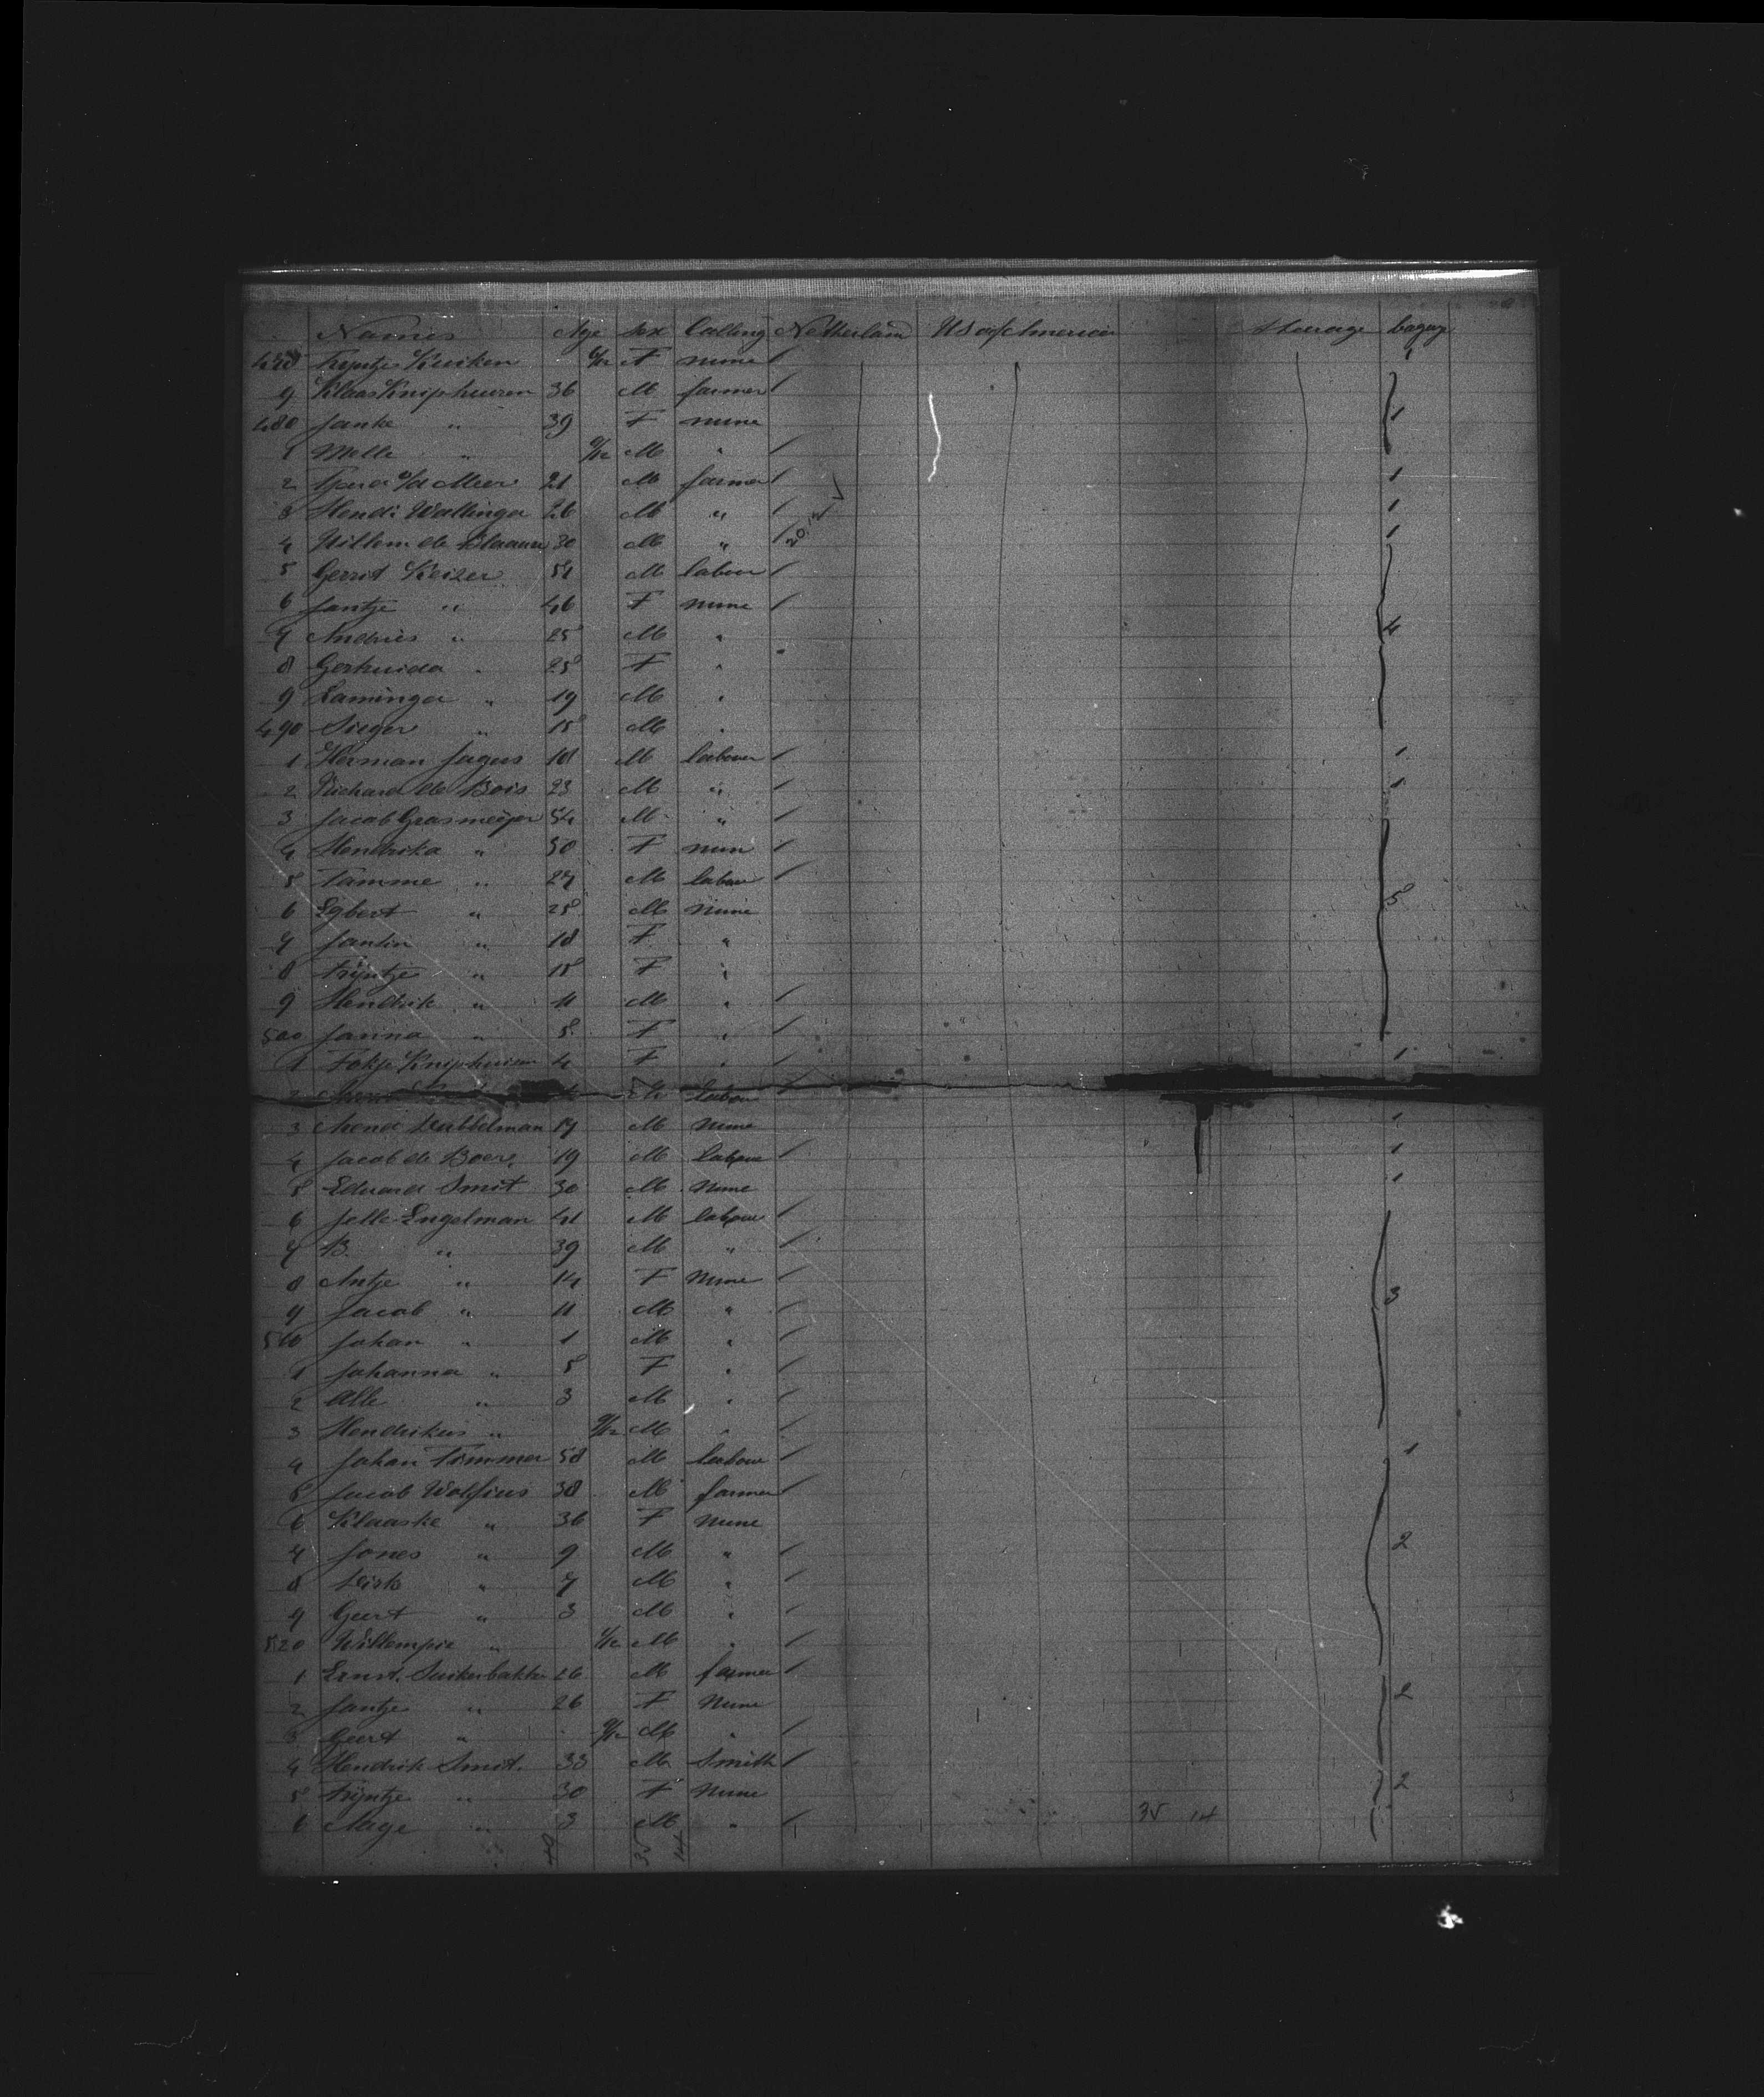 Names Age Sex Calling Netherland US of America Steerage bagage
478 Trijntje Kuiken 6/12 F none 1
9 Klaas Kniphuisen 36 M farmer
480 Janke " 39 F none 1
1 Melle " 9/12 M "
2 v/d Meer 21 M farmer 1
3 Hendr Wallinga 26 M " 1
4 Willem de 30 M " 1
5 Gerrit Keizer 51 M labour
6 Jantje " 46 F none
7 Andries " 25 M " 4
8 " 25 F "
9 Lamminga " 19 M "
490 Sieger " 15 M "
1 Herman Jagers 18 M labour 1
2 Richard de Bois 23 M " 1
3 Jacob Grasmeijer 54 M "
4 Hendrika " 50 F none
5 Tamme " 27 M labour
6 Egbert " 25 M none 5
7 Jantin " 18 F "
8 Trijntje " 15 F "
9 Hendrik " 11 M "
500 Janna " 5 F "
1 Fokje Kniphuisen 4 F " 1
2 M labour
3 Arend Dubbelman 19 M none 1
4 Jacob de Boer 19 M labour 1
5 Eduard Smit 30 M none 1
6 Jelle Engelman 41 M labour
7 B. " 39 M "
8 Antje " 14 F none
9 Jacob " 11 M " 3
510 Johan " 1 M "
1 Johanna " 5 F "
2 " 3 M "
3 Hendrikus " 9/12 M "
4 Johan Timmer 58 M labour 1
5 Jacob Wolfius 38 M farmer
6 Klaaske " 36 F none
7 Jones " 9 M " 2
8 " 7 M "
9 Geert " 3 M "
520 Willempie " 1/12 M "
1 Ernst Suikerbakker 26 M farmer
2 Jantje " 26 F none 2
3 Geert " 9/12 M "
4 Hendrik Smit 33 M Smith
5 Trijntje " 30 F none 2
6 " 3 M "
35 14